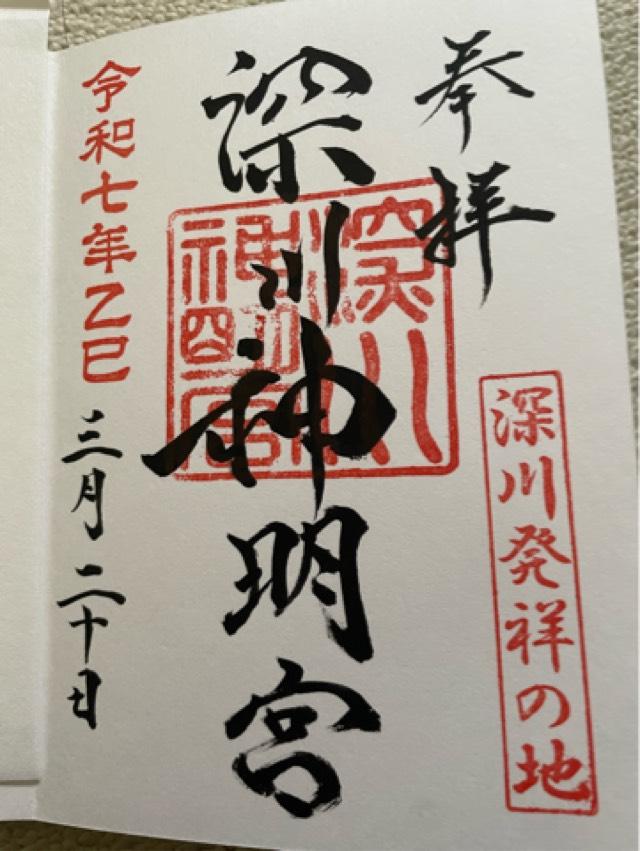 奉拝
深川発祥の地
深川神明宮
令和七年乙巳
三月二十日